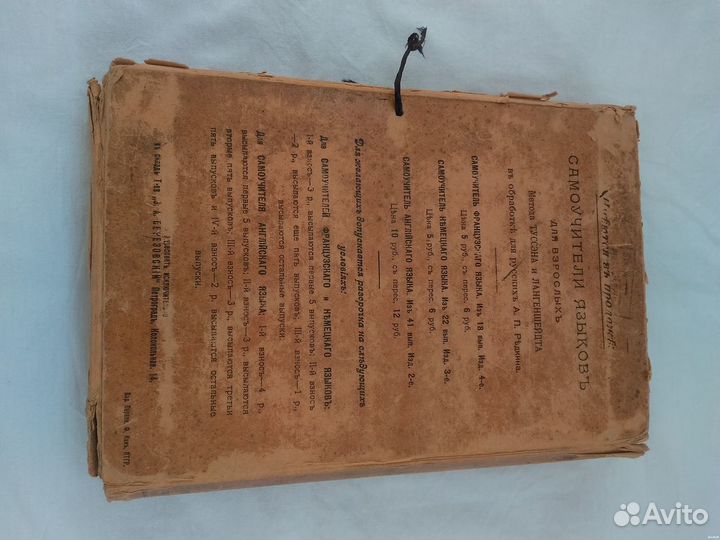 ИМѢЮТСЯ ВЪ ПРОДАЖѢ:
САМОУЧИТЕЛИ ЯЗЫКОВЪ
ДЛЯ ВЗРОСЛЫХЪ
Метода ТУССЭНА и ЛАНГЕНШЕЙДТА
въ обработкѣ для русскихъ А. П. Рѣдкина.
САМОУЧИТЕЛЬ ФРАНЦУЗСКАГО ЯЗЫКА. Изъ 18 вып. Изд. 4-е.
Цѣна 5 руб., съ перес. 6 руб.
САМОУЧИТЕЛЬ НѢМЕЦКАГО ЯЗЫКА. Изъ 22 вып. Изд. 3-е.
Цѣна 5 руб., съ перес. 6 руб.
САМОУЧИТЕЛЬ АНГЛІЙСКАГО ЯЗЫКА. Изъ 41 вып. Изд. 2-е.
Цѣна 10 руб., съ перес. 12 руб.
Для желающихъ допускается разсрочка на слѣдующихъ
условіяхъ:
Для САМОУЧИТЕЛЕЙ ФРАНЦУЗСКАГО и НѢМЕЦКАГО ЯЗЫКОВЪ:
I-й взносъ—3 р., высылаются первые 5 выпусковъ; II-й взносъ
—2 р., высылаются еще пять выпусковъ; III-й взносъ—1 р.,
высылаются остальные выпуски.
Для САМОУЧИТЕЛЯ АНГЛІЙСКАГО ЯЗЫКА: I-й взносъ—4 р.,
высылаются первые 5 выпусковъ; II-й взносъ—3 р., высылаются
вторые пять выпусковъ; III-й взносъ—3 р., высылаются третьи
пять выпусковъ и IV-й взносъ—2 р., высылаются остальные
выпуски.
въ складѣ Т-ва А. БЕРЕЗОВСКІЙ Петроградъ, Колокольная, 14.
Avito